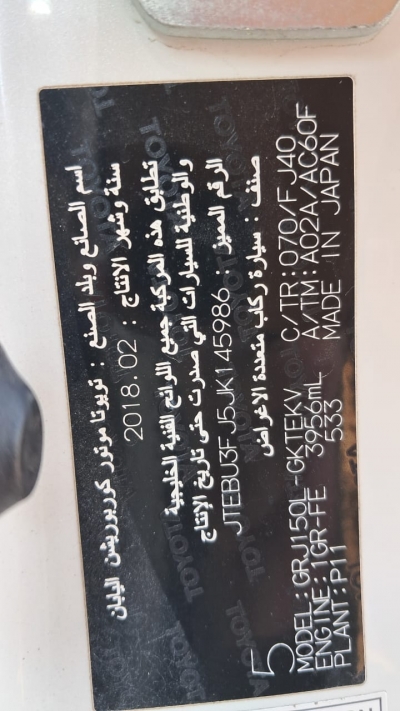 اسم الصانع وبلد الصنع : تويوتا موتور كوربوريشن اليابان
سنة وشهر الانتاج : 2018.02
تطابق هذه المركبة جميع اللوائح الفنية الخليجية
والوطنية للسيارات التي صدرت حتى تاريخ الإنتاج
الرقم المميز : JTEBU3FJ5JK145986
صنف : سيارة ركاب متعددة الاغراض
5
MODEL:GRJ150L-GKTEKV C/TR:070/FJ40
ENGINE:1GR-FE 3956mL A/TM:A02A/AC60F
PLANT:P11 533 MADE IN JAPAN